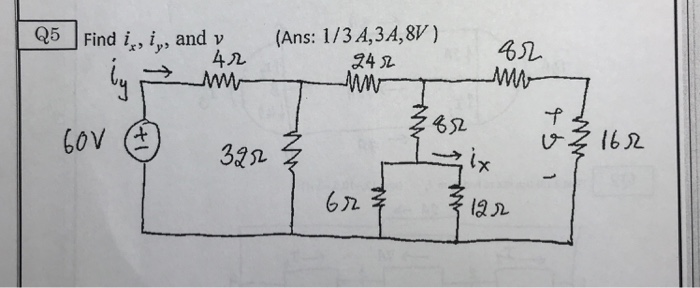 Q5 Find iₓ, i_y, and v (Ans: 1/3 A,3A,8V)
4Ω 24Ω 8Ω
i_y →
60V + − 32Ω 8Ω + v − 16Ω
→ iₓ
6Ω 12Ω